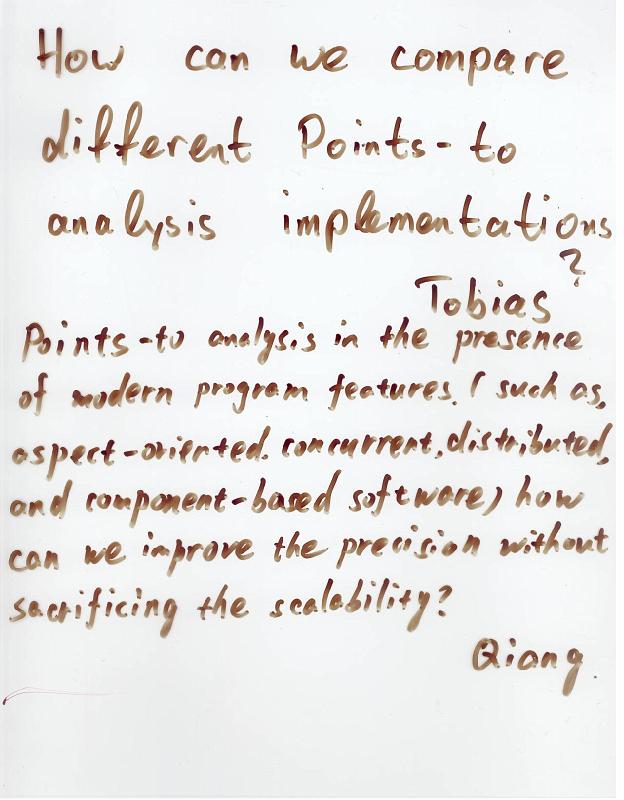 How can we compare
different Points-to
analysis implementations
?
Tobias
Points-to analysis in the presence
of modern program features. (such as,
aspect-oriented. concurrent, distributed,
and component-based software) how
can we improve the precision without
sacrificing the scalability?
Qiang